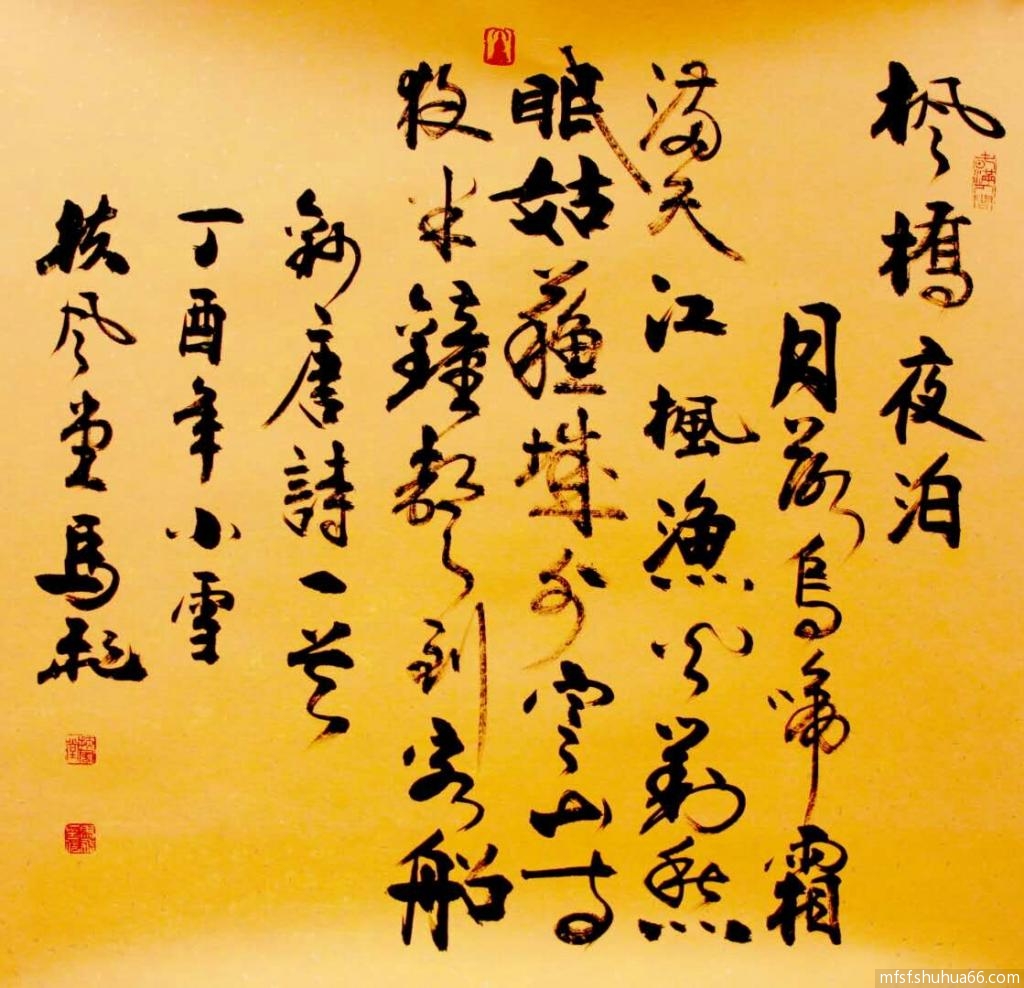 枫橋夜泊
月落烏啼霜
滿天江楓漁火對愁
眠姑蘇城外寒山寺
夜半鐘聲到客船
錄唐詩一首
丁酉年小雪
扶风堂馬
mfsf.shuhua66.com